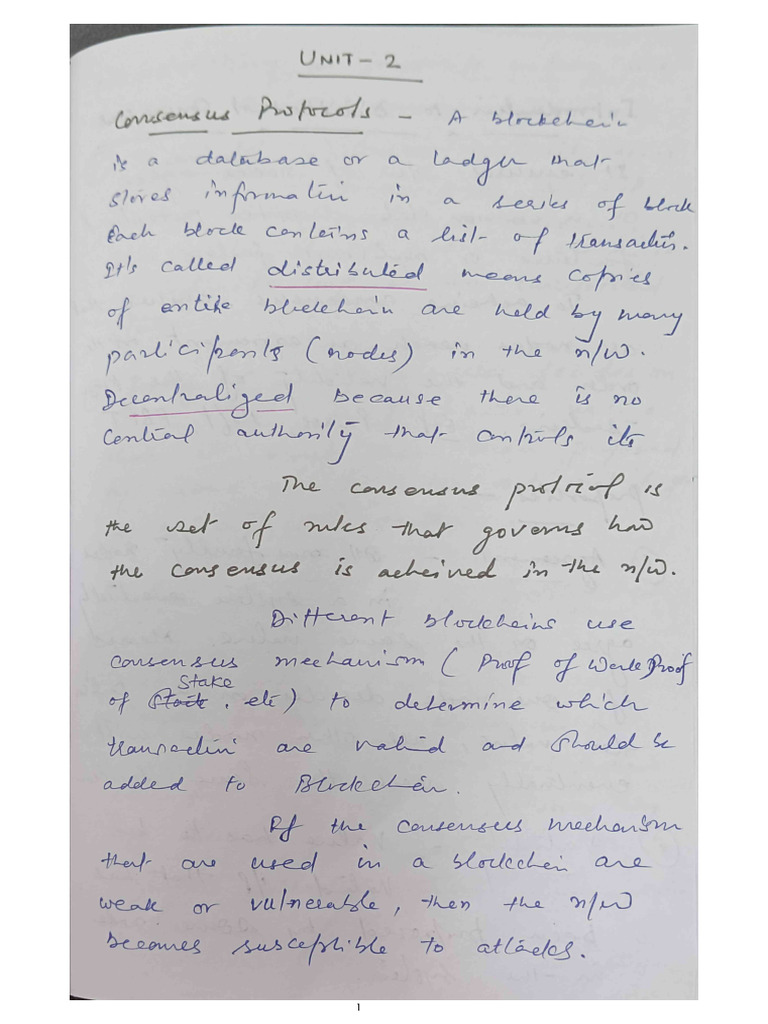 UNIT - 2
Consensus Protocols - A blockchain
is a database or a ladger that
stores information in a series of block
Each block contains a list of transactin.
It's called distributed means copies
of entire blockchain are held by many
participants (nodes) in the n/w.
Decentralized because there is no
central authority that controls its
The consensus protocol is
the set of rules that governs how
the consensus is acheived in the n/w.
Different blockchains use
consensus mechanism ( Proof of Work, Proof
of Stake, etc) to determine which
transactin are valid and should be
added to Blockchain.
If the consensus mechanism
that are used in a blockchain are
weak or vulnerable, then the n/w
becomes susceptible to attacks.
1